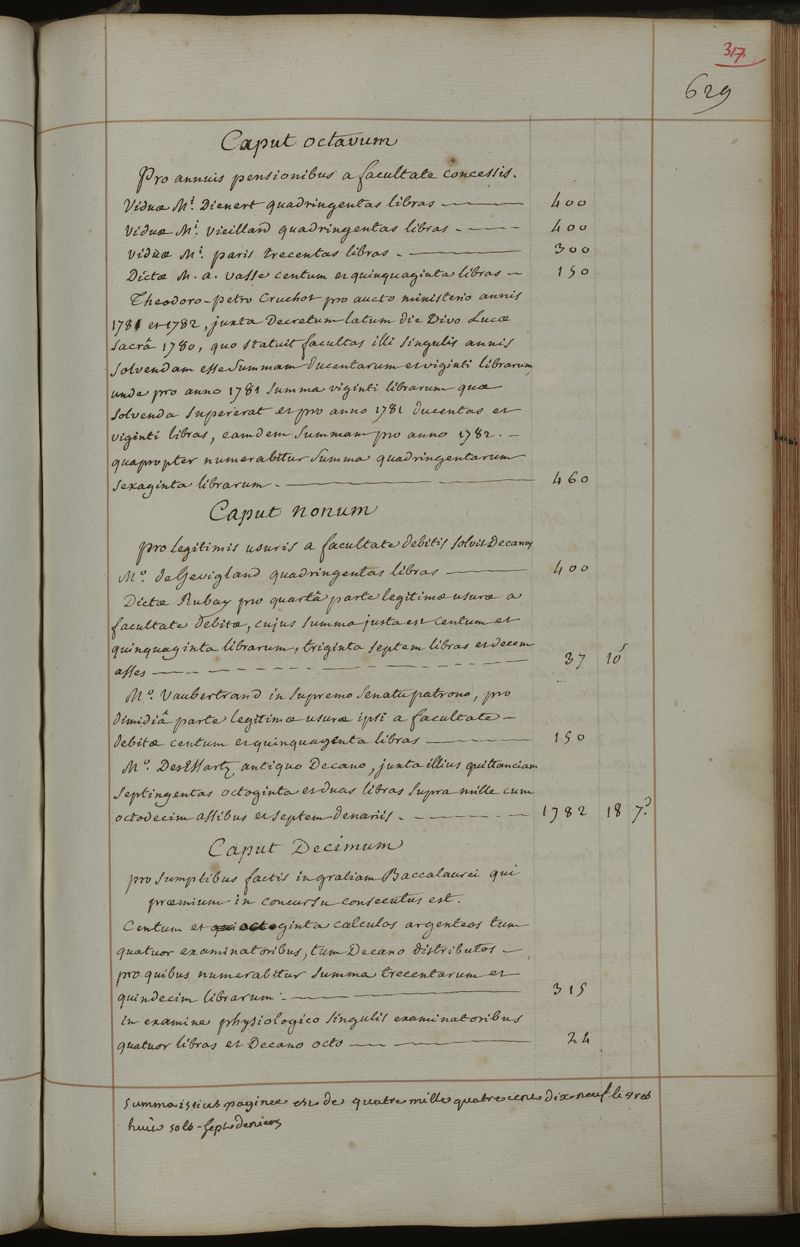 317
629
Caput octavum
Pro annuis pensionibus a facultate concessis.
Viduæ Mi. Dienert quadringentas libras — 400
viduæ Mi. vieillard quadringentas libras - 400
viduæ Mi. paris trecentas libras - 300
Dictæ M. a. vasse centum et quinquaginta libras — 150
Theodoro-petro Cruchot pro aucto ministerio annis
1781 et 1782, juxta Decretum latum die Divo Lucæ
Sacrâ 1780, quo statuit facultas illi singulis annis
solvendam esse summam ducentarum et viginti librarum,
unde pro anno 1781 summa viginti librarum quæ
solvenda supererat et pro anno 1781 ducentas et
viginti libras, eamdem summam pro anno 1782. —
quapropter numerabitur summa quadringentarum
sexaginta librarum - 460
Caput nonum
pro legitimis usuris a facultate debitis solvit Decanus
Mo. de Gevigland quadringentas libras — 400
Dictæ Rubay pro quartâ parte legitimæ usuræ a
facultate debitæ, cujus summa justa est centum et
quinquaginta librarum, triginta septem libras et decem
asses — 37 10s
Mo. Vaubertrand in supremo senatu patrono, pro
dimidiâ parte legitimæ usuræ ipsi a facultate —
debitæ centum et quinquaginta libras — 150
Mo. DesEssartz antiquo Decano, juxta illius quittanciam
septingentas octoginta et duas libras supra mille cum
octodecim assibus et septem denariis. - 1782 18 7d
Caput Decimum
pro sumptibus factis in gratiam Baccalaurei qui
præmium in concursu consecutus est.
Centum et octoginta calculos argenteos tum
quatuor examinatoribus, tum Decano distributos —
pro quibus numerabitur summa trecentarum et
quindecim librarum - 315
in examine physiologico singulis examinatoribus
quatuor libras et Decano octo — 24
summa istius paginæ est de quatre mille quatre cent dix neuf livres
huit sols - sept deniers